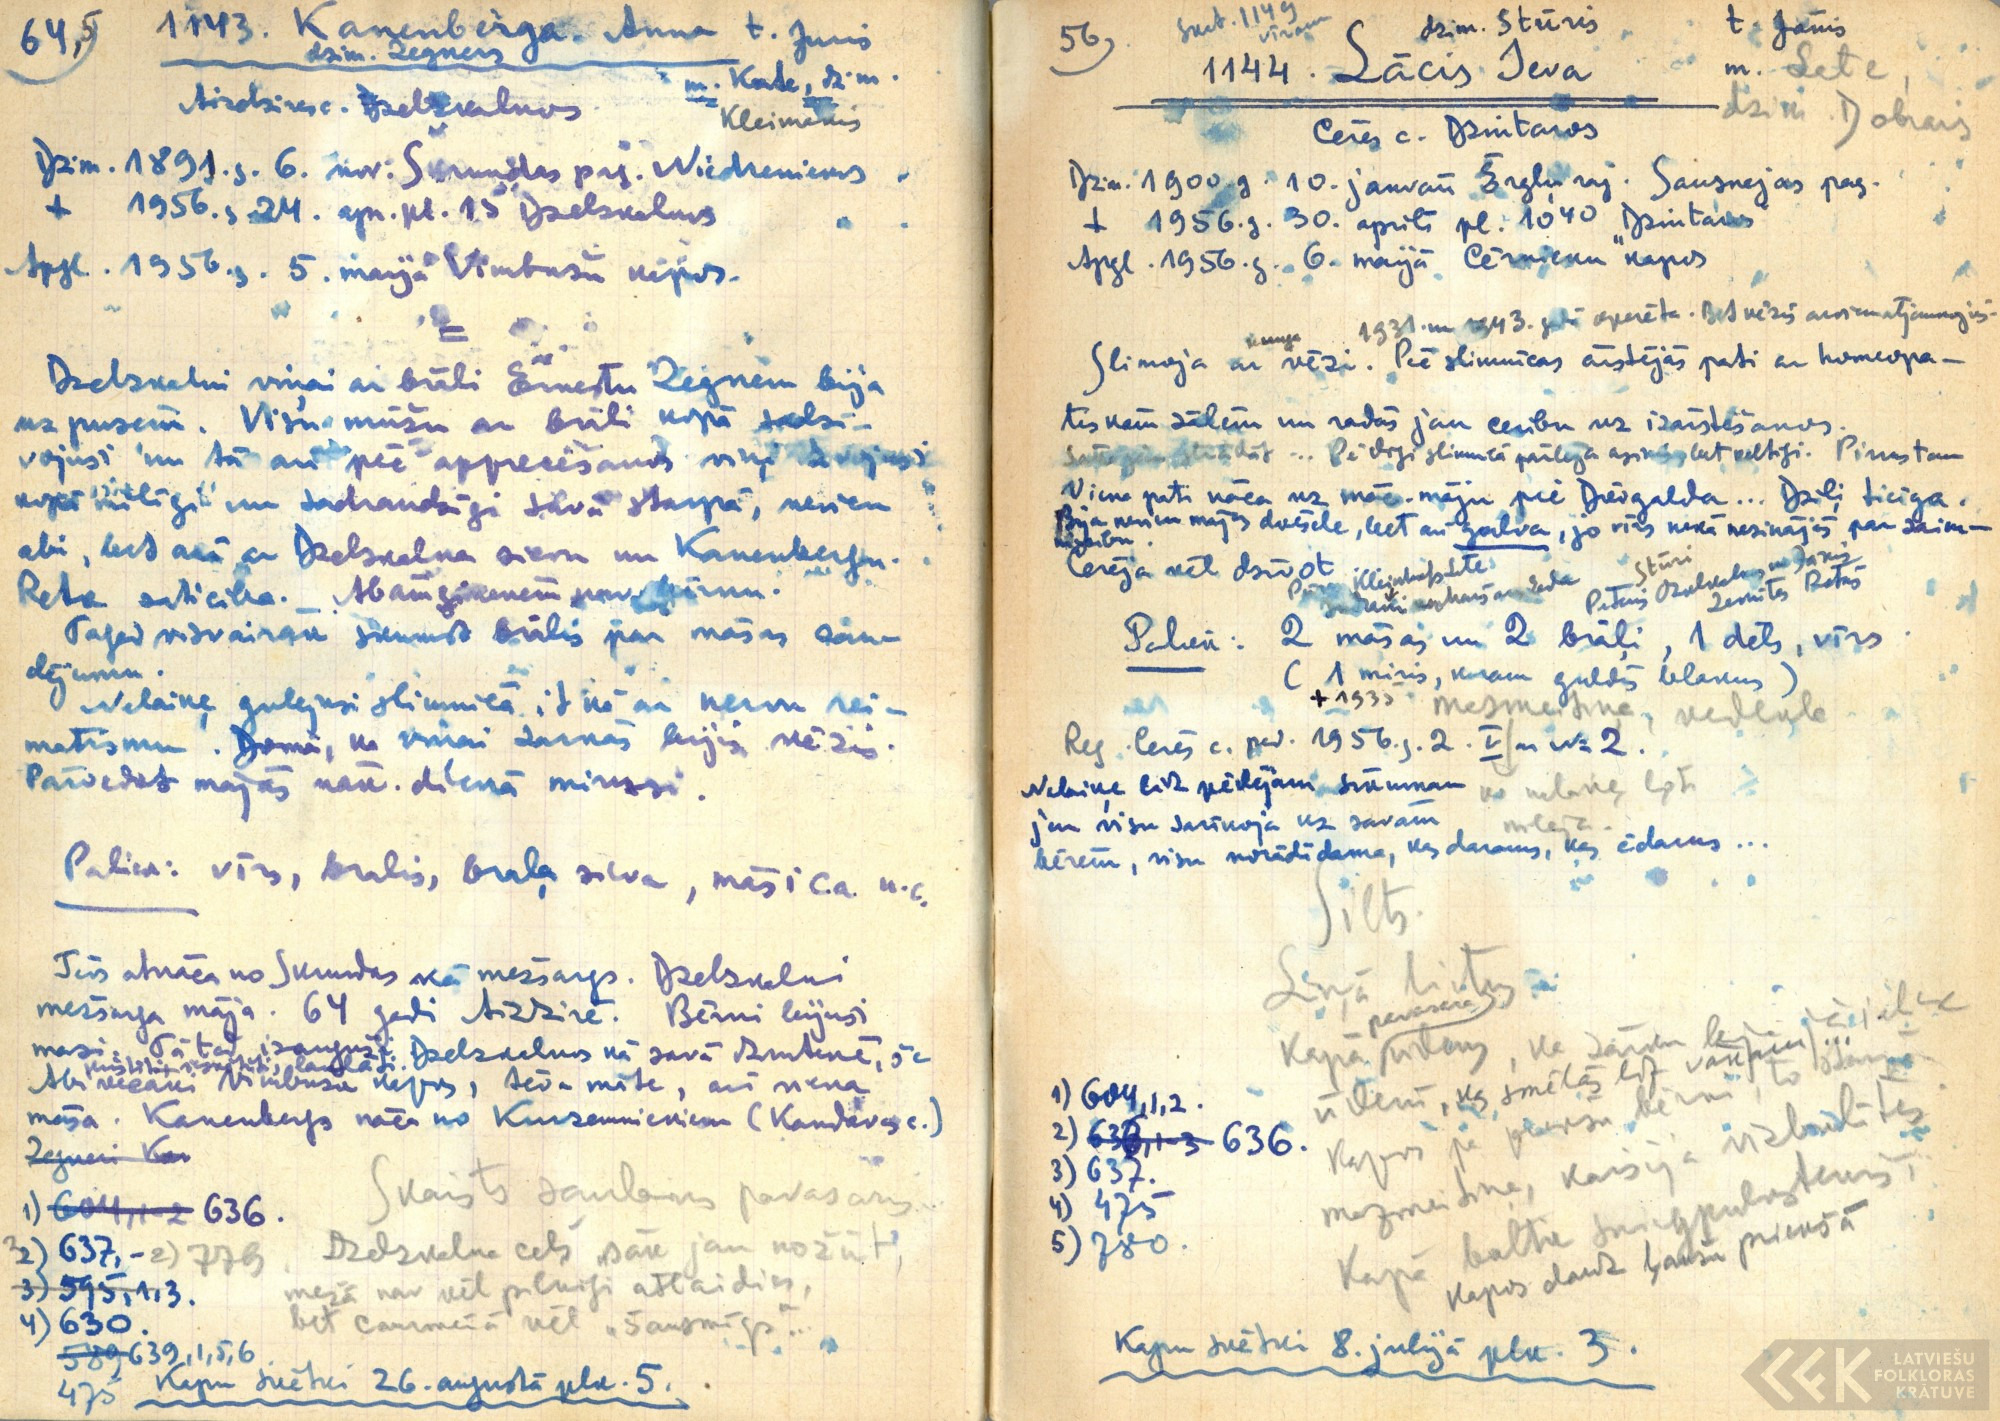 64,5
1143. Kanenberga. Anna t. Juris
dzim. Zegners
m. Kate, dzim.
Kleimanis
Aizdzires c. Dzelzkalnos
Dzim. 1891. g. 6. nov. Skrundas pag. Niedreniekos
+ 1956. g. 24. apr. pl. 15 Dzelzkalnos
Apgl. 1956. g. 5. maijā Vimbušu kapos.
Dzelzkalni viņai ar brāli Ernestu Zegneru bija
uz pusēm. Visu mūžu ar brāli kopā sadzī-
vojusi un tā arī pēc apprecēšanās viņi dzīvojuši
kopā mīlīgi un sadraudzīgi savā starpā, nevien
abi, bet arī ar Dzelzkalna sievu un Kanenbergu.
Reta saticība. Abām ģimenēm nav bērnu.
Tagad visvairāk skumst brālis par māsas zau-
dējumu.
Nelaiķe gulējusi slimnīcā it kā ar nervu rei-
matismu. Domā, ka viņai zarnās bijis vēzis.
Pārvedot mājās nāk. dienā mirusi.
Paliek: vīrs, brālis, brāļa sieva, māsīca u.c.
Tēvs atnāca no Skrundas kā mežsargs. Dzelzkalni
mežsarga māja. 64 gadi Aizdzirē. Bērni bijuši
mazi. Tā tad izauguši Dzelzkalnos kā savā dzimtenē, še
kristīti, iesvētīti, laulāti.
Abi vecāki Vimbušu kapos, tēva māte, arī viena
māsa. Kanenbergs nāca no Kurzemniekiem (Kandavas c.)
Zegneri Kan
1) 604,1-2 636.
2) 637,- 2) 779
3) 595,1,3.
4) 630.
589 639,1,5,6
475
Skaists saulains pavasaris
Dzelzkalna ceļš sāk jau nožūt,
mežā nav vēl pilnīgi atlaidies,
bet caurmērā vēl "šausmīgs"...
Kapu svētki 26. augustā plk. 5.
56
Skat. 1149
vīram
dzim. Stūris
1144. Lācis Ieva
t. Jānis
m. Lete,
dzim. Dobrais
Ceres c. Dzintaros
Dzim. 1900. g. 10. janvārī Ērgļu raj. Sausnejas pag.
+ 1956. g. 30. aprīlī pl. 10⁴⁰ "Dzintaros"
Apgl. 1956. g. 6. maijā Cērnieku kapos
1931. un 1943. gadā operēta. Bet vēzis arvien atjaunojies.
Slimoja ar vēzi. Pēc slimnīcas ārstējās pati ar homeopa-
tiskām zālēm un radās jau cerību uz izārstēšanos.
Pēdējā slimnīcā pārlēja asinis, bet veltīgi. Pirms tam
Viena pati nāca uz māc. māju pie Dievgalda... Dziļi ticīga.
Bija nevien mājas dvēsele, bet arī galva, jo vīrs nekā nezinājās par saim-
niecību.
Cerēja vēl dzīvot.
Stūri
Paliek: 2 māsas un 2 brāļi, 1 dēls, vīrs.
(1 miris, kuram guldīs blakus)
+ 1935 mazmeitiņa, vedekla
Reg. Ceres c. pad. 1956. g. 2. V ar № 2.
Nelaiķe līdz pēdējam sīkumam
jau visu sarīkoja uz savām
bērēm, visu norādīdama, kas darams, kas ēdams...
ko nelaiķe ļoti
mīlēja.
Silts.
Līņā lietus
pavasara
Kapā ūdens, ka zārku laiž iekšā
ūdenī, kas smēlās līdz vākam...
mazmeitiņa, kaisīja vizbulītes
Kapā baltu sniegpulkstenīši
Kapos daudz ļaužu priekšā
1) 604,1,2.
2) 636,1-3 636.
3) 637.
4) 475
5) 780.
Kapu svētki 8. jūlijā plk. 3.
LATVIEŠU
FOLKLORAS
KRĀTUVE